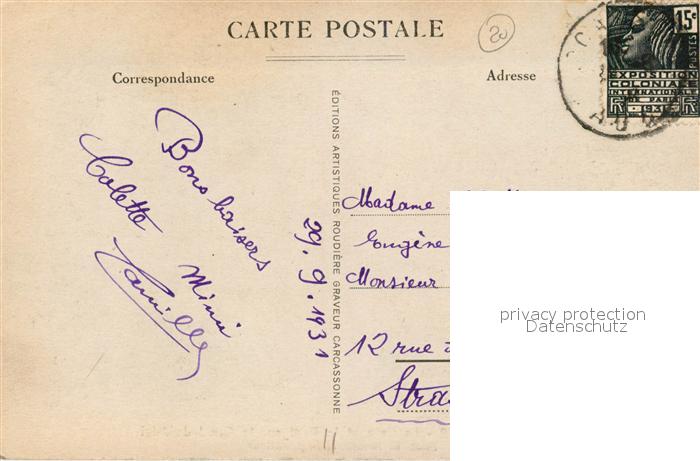 CARTE POSTALE
20
Correspondance
Adresse
15c
POSTES
EXPOSITION
COLONIALE
INTERNATIONALE
PARIS
RF 1931 RF
Bons baisers
Colette Mimi
Camille
29.9.1931
ÉDITIONS ARTISTIQUES ROUDIÈRE GRAVEUR CARCASSONNE
Madame
Eugène
Monsieur
12 rue
Stra
11
privacy protection
Datenschutz